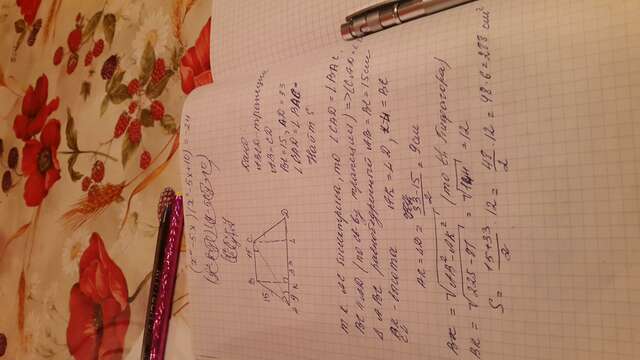 (x²-5x)(x²-5x+10) = -24
Дано
ABCD трапеция
AB = CD
BC = 15, AD = 33
∠CAD = ∠BAC
Найт S
т.к. AC биссектриса, то ∠CAD = ∠BAC
BC ∥ AD (по св-ву трапеции) =>
Δ ABC равнобедренный AB = BC = 15 см
BK - высота
AK = LD,
BC
AK = LD = (33-15)/2 = 9 см
BK = √(AB² - AK²) (по т. Пифагора)
BK = √(225-81) = √144 = 12
S = (15+33)/2 · 12 = 48/2 · 12 = 48·6 = 288 см²